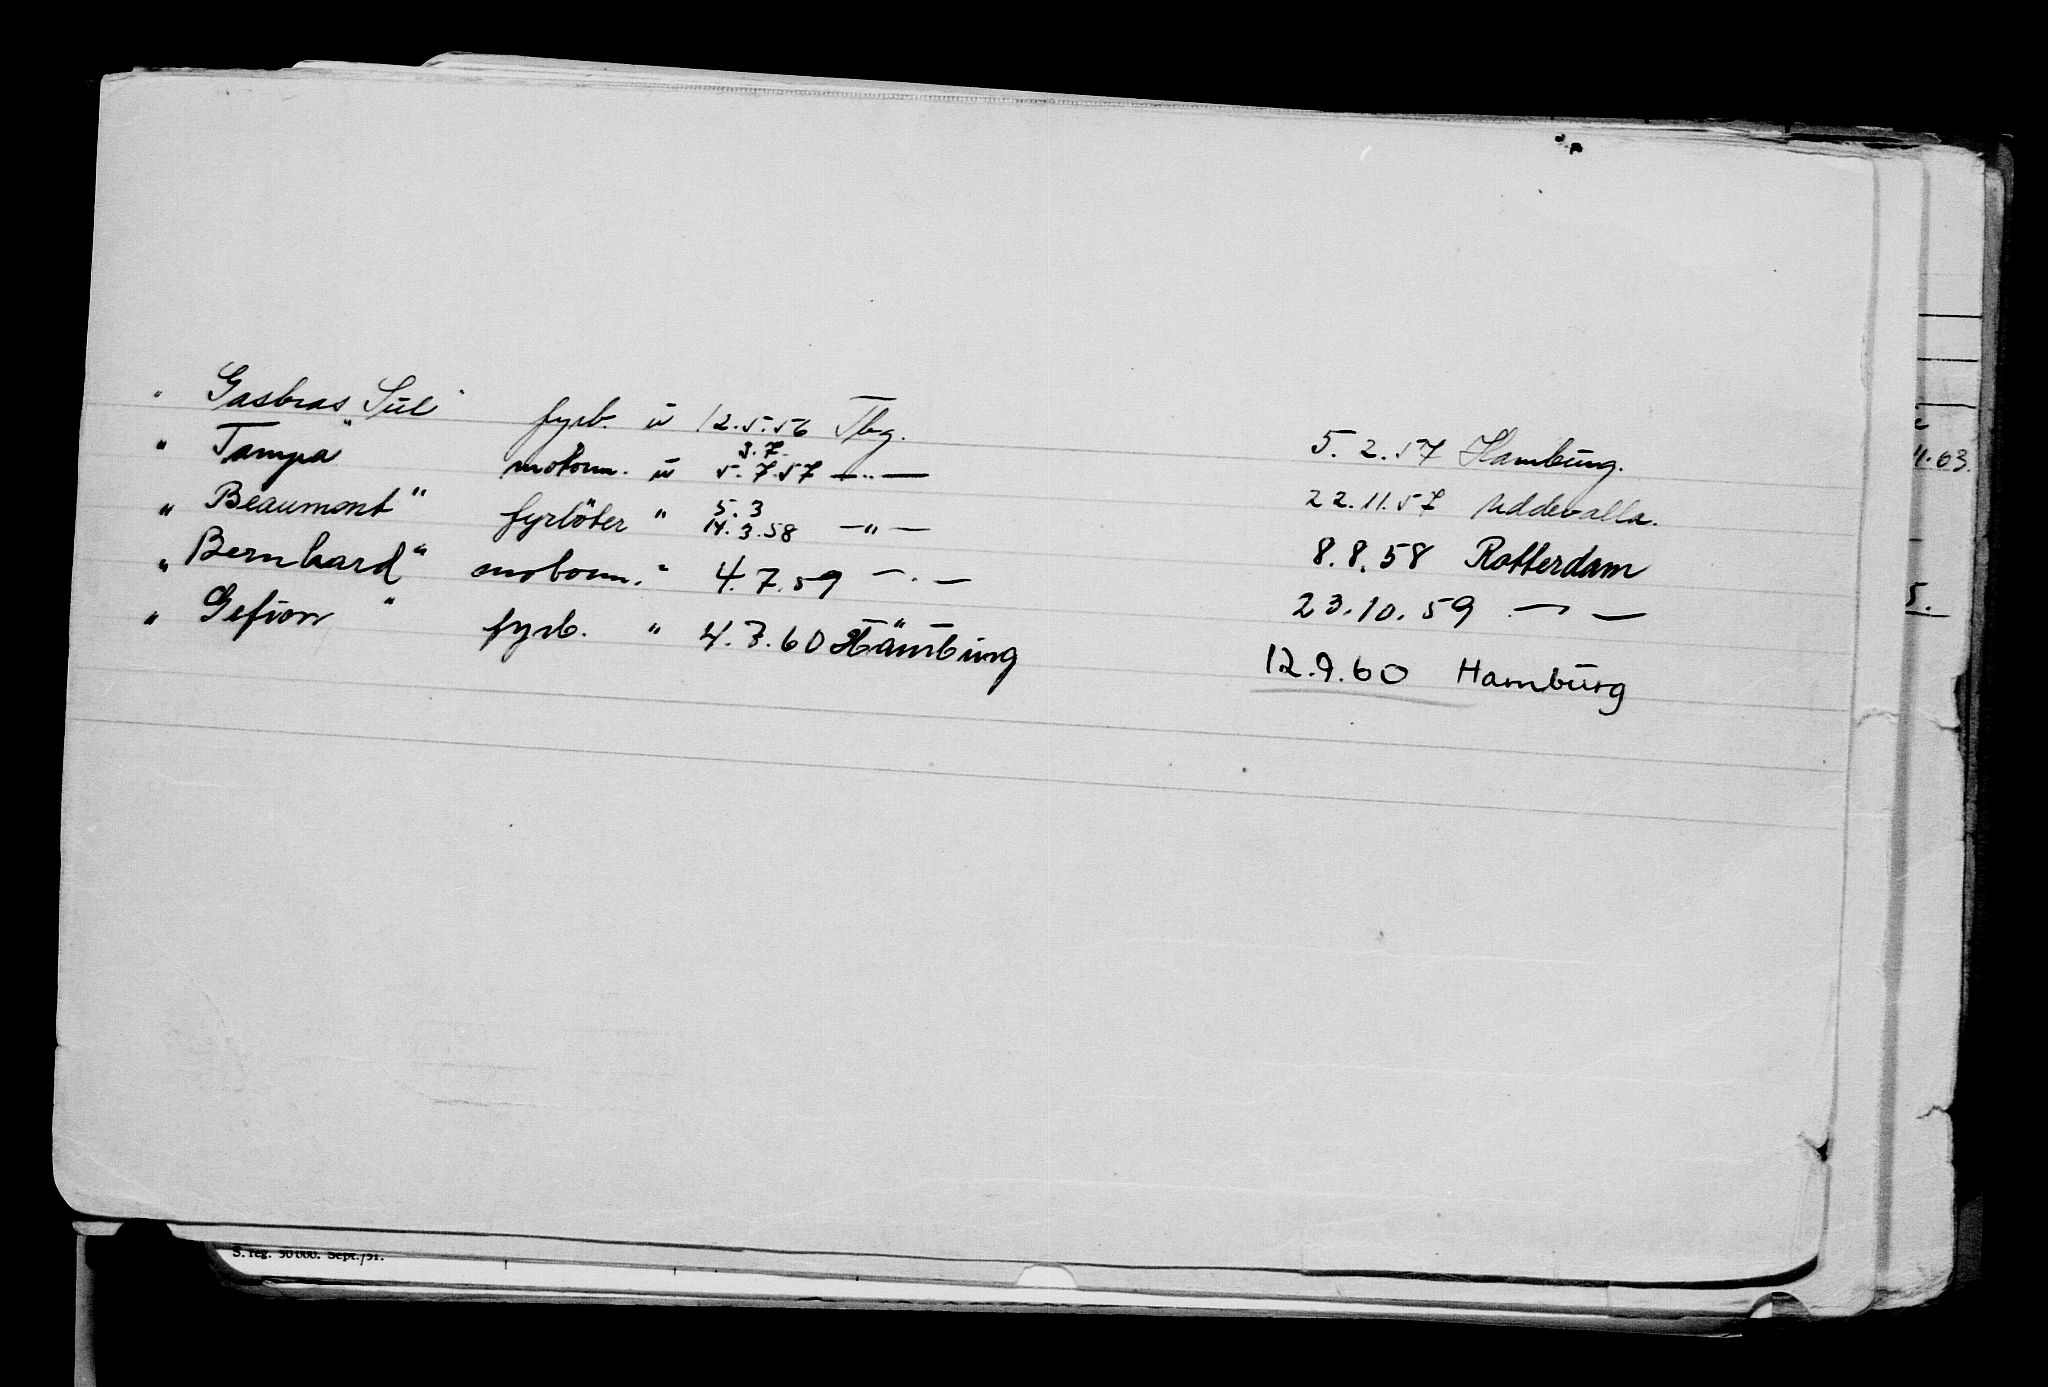 " Gasbras Sul" fyrb. u 12.5.56 Tbg. 5.2.57 Hamburg.
" Tampa" motorm. u 3.7. 5.7.57 —"— 22.11.57 Uddevalla.
" Beaumont" fyrböter " 5.3 14.3.58 —"— 8.8.58 Rotterdam
" Bernhard" motorm. " 4.7.59 —"— 23.10.59 —"—
" Gefion " fyrb. " 4.3.60 Hamburg 12.9.60 Hamburg
11.63.
5.
S. reg. 50 000. Sept./51.